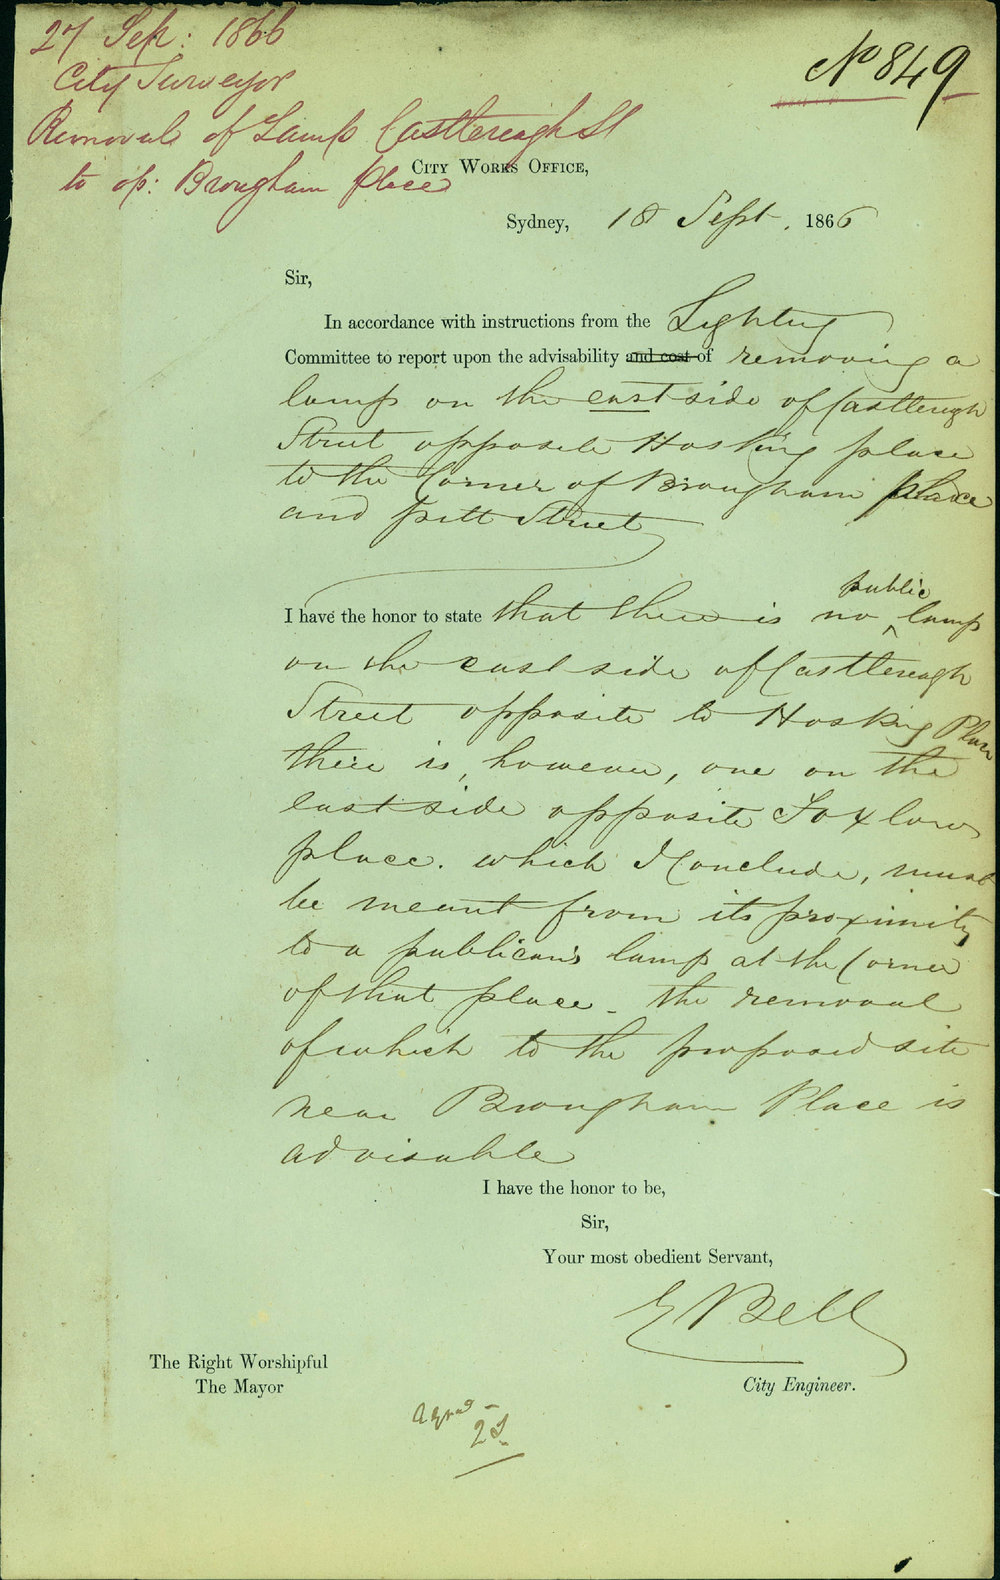 27 Sep: 1866
City Surveyor
Removal of Lamp Castlereagh St
to op: Brougham place
No 849
City Works Office,
Sydney, 18 Sept. 1866
Sir,
In accordance with instructions from the Lighting
Committee to report upon the advisability and cost of removing a
lamp on the east side of Castlereagh
Street opposite Hosking place
to the Corner of Brougham place
and pitt Street
I have the honor to state that there is no public lamp
on the east side of Castlereagh
Street opposite to Hosking Place
there is, however, one on the
east side opposite Foxlow
place. which I Conclude, must
be meant from its proximity
to a publican's lamp at the Corner
of that place - the removal
of which to the proposed site
near Brougham Place is
advisable
I have the honor to be,
Sir,
Your most obedient Servant,
E Bell
City Engineer.
The Right Worshipful
The Mayor